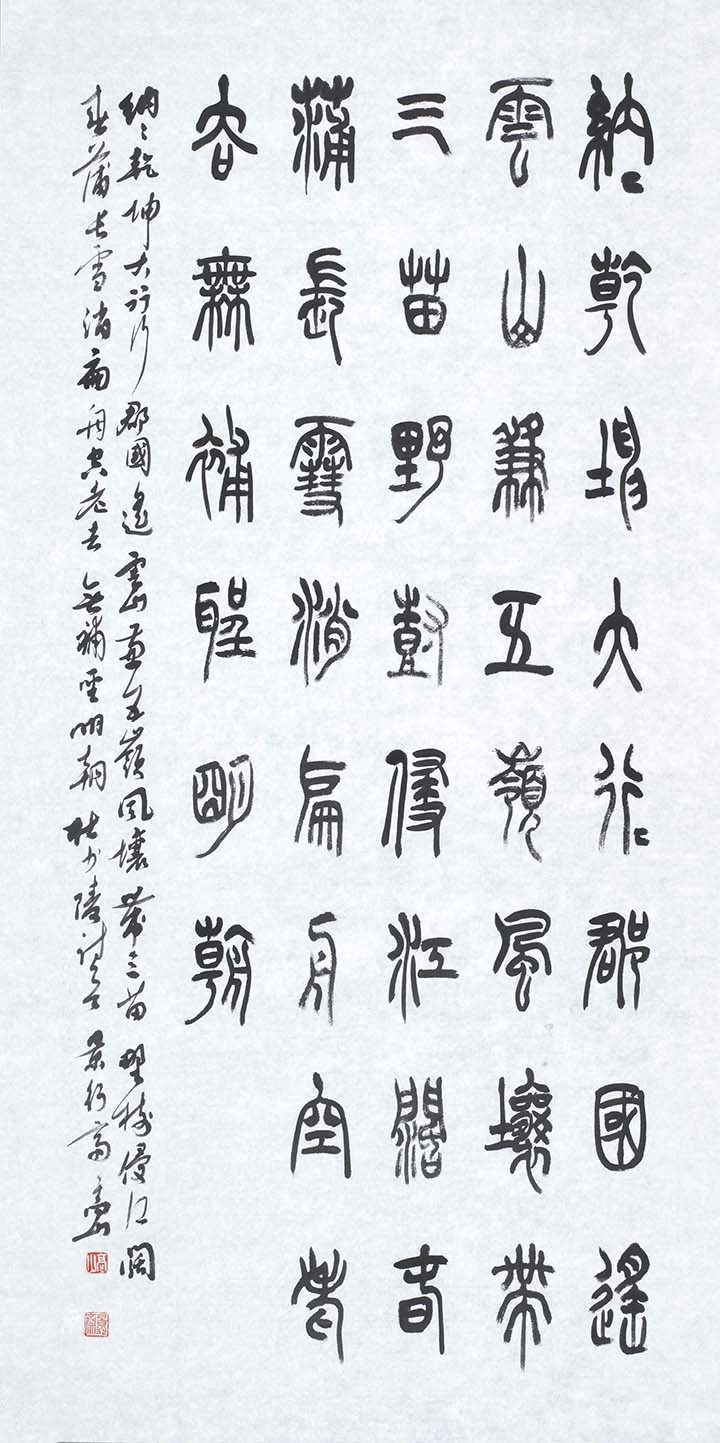 納〻乾坤大行〻郡國遙
雲山兼五嶺風壤帶
三苗野樹侵江闊春
蒲長雪消扁舟空老
去無補聖明朝
納〻乾坤大行〻郡國遙雲山兼五嶺風壤帶三苗野樹侵江闊
春蒲長雪消扁舟空老去無補聖明朝杜少陵詩景行齋